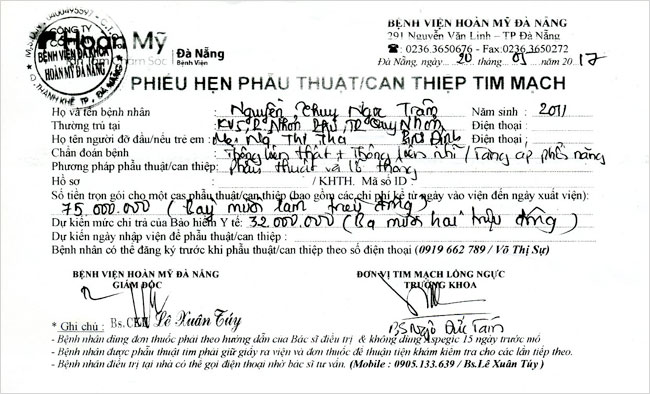 BỆNH VIỆN HOÀN MỸ ĐÀ NẴNG
291 Nguyễn Văn Linh – TP Đà Nẵng
☎: 0236.3650676 - Fax:0236.3650272
Đà Nẵng, ngày 20 tháng 05 năm 2017
CÔNG TY
BỆNH VIỆN ĐA KHOA
HOÀN MỸ ĐÀ NẴNG
Q. THANH KHÊ TP. ĐÀ NẴNG
Hoàn Mỹ Đà Nẵng
Bệnh Viện
PHIẾU HẸN PHẪU THUẬT/CAN THIỆP TIM MẠCH
Họ và tên bệnh nhân : Nguyễn Thuỵ Ngọc Trâm Năm sinh : 2011
Thường trú tại : KV5, P. Nhơn Phú, TP Quy Nhơn Điện thoại :
Họ tên người đỡ đầu/nếu trẻ em : Ng Thị Thu Bình Định Điện thoại :
Chẩn đoán bệnh : Thông liên thất + Thông liên nhĩ / Tăng áp phổi nặng
Phương pháp phẫu thuật/can thiệp: phẫu thuật vá lỗ thông
Hồ sơ : / KHTH. Mã số ID :
Số tiền trọn gói cho một cas phẫu thuật/can thiệp (bao gồm các chi phí kể từ ngày vào viện đến ngày xuất viện):
75.000.000 (Bảy mươi lăm triệu đồng)
Dự kiến mức chi trả của Bảo hiểm Y tế: 32.000.000 (Ba mươi hai triệu đồng)
Dự kiến ngày nhập viện để phẫu thuật/can thiệp :
Bệnh nhân có thể đăng ký trước khi phẫu thuật/can thiệp theo số điện thoại (0919 662 789 / Võ Thị Sự)
BỆNH VIỆN HOÀN MỸ ĐÀ NẴNG
GIÁM ĐỐC
Bs.CKII Lê Xuân Túy
ĐƠN VỊ TIM MẠCH LỒNG NGỰC
TRƯỞNG KHOA
BS Ngô Đức Tám
* Ghi chú :
- Bệnh nhân dùng đơn thuốc phải theo hướng dẫn của Bác sĩ điều trị & không dùng Aspegic 15 ngày trước mổ
- Bệnh nhân được phẫu thuật tim phải giữ giấy ra viện và đơn thuốc để thuận tiện khám kiểm tra cho các lần tiếp theo.
- Bệnh nhân điều trị tại nhà có thể gọi điện thoại nhờ bác sĩ tư vấn. (Mobile : 0905.133.639 / Bs.Lê Xuân Túy )